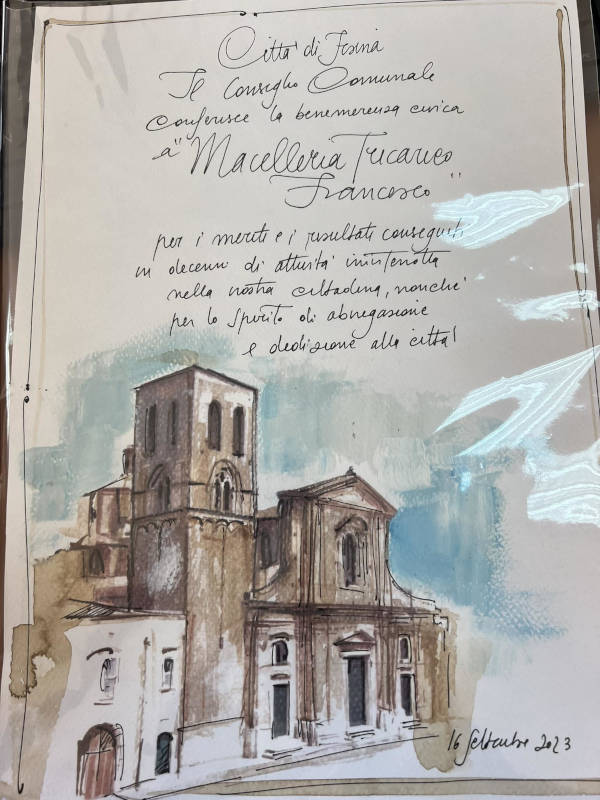 Città di Irsina
Il Consiglio Comunale
conferisce la benemerenza civica
a "Macelleria Tricarico
Francesco"
per i meriti e i risultati conseguiti
in decenni di attività ininterrotta
nella nostra cittadina, nonché
per lo spirito di abnegazione
e dedizione alla città
16 Settembre 2023